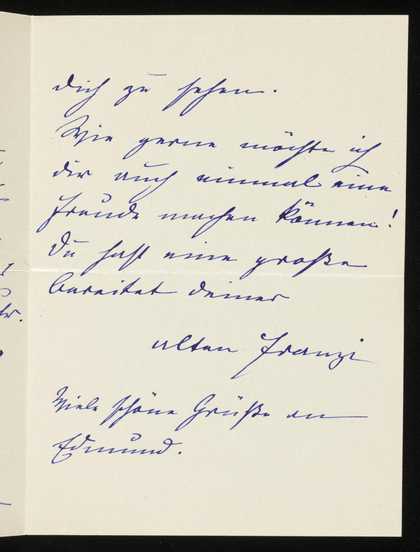 dich zu sehen.
Wie gerne möchte ich
dir auch einmal eine
Freude machen können!
Du hast eine große
bereitet deiner
alten Franzi
Viele schöne Grüße an
Edmund.